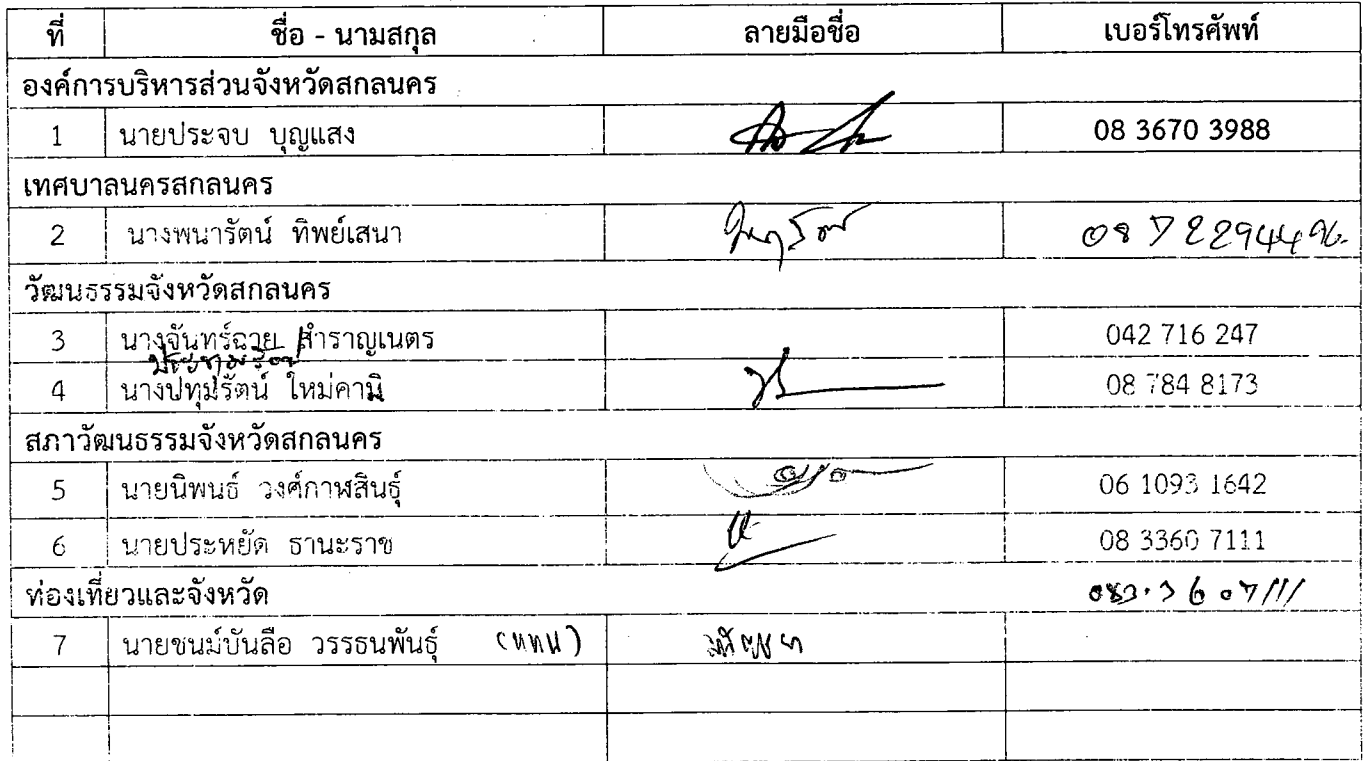 ที่ ชื่อ - นามสกุล ลายมือชื่อ เบอร์โทรศัพท์
องค์การบริหารส่วนจังหวัดสกลนคร
1 นายประจบ บุญแสง 08 3670 3988
เทศบาลนครสกลนคร
2 นางพนารัตน์ ทิพย์เสนา 087229449
วัฒนธรรมจังหวัดสกลนคร
3 นางจันทร์ฉาย สำราญเนตร 042 716 247
4 นางปทุมรัตน์ ใหม่คามิ 08 784 8173
สภาวัฒนธรรมจังหวัดสกลนคร
5 นายนิพนธ์ วงศ์กาฬสินธุ์ 06 1093 1642
6 นายประหยัด ธานะราช 08 3360 7111
ท่องเที่ยวและจังหวัด 083-3607111
7 นายชนม์บันลือ วรรธนพันธุ์ (แทน)